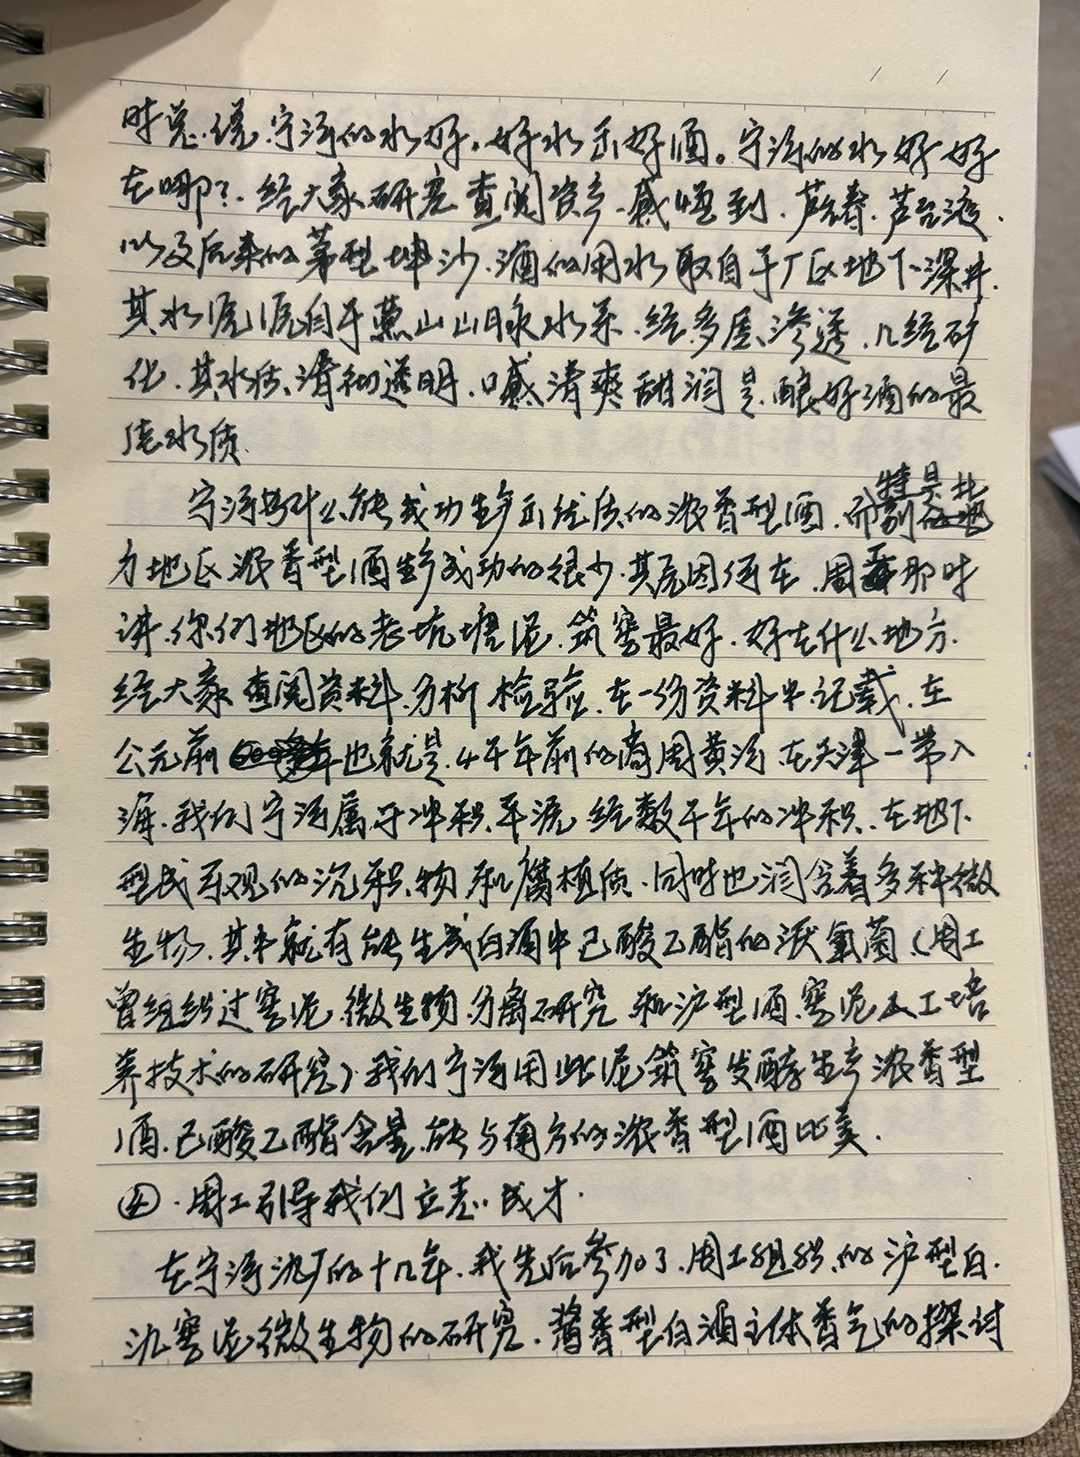 时总说宁河的水好。好水出好酒。宁河的水好好
在哪?经大家研究查阅资产感悟到.芦台春.芦台液.
以及后来的茅型坤沙.酒的用水取自于厂区地下深井.
其水源源自于燕山山脉水系.经多层渗透.几经矿
化.其水质清彻透明.口感清爽甜润是酿好酒的最
佳水质.
宁河为什么能成功生产出优质的浓香型酒.而特别是北
方地区浓香型酒生产成功的很少.其原因何在.周那时
讲.你们地区的老坑塘泥.筑窖最好.好在什么地方.
经大家查阅资料.分析检验.在一份资料中记载.在
公元前也就是.4千年前的商周黄河在天津一带入
海.我们宁河属于冲积平原经数千年的冲积.在地下
型成可观的沉积物和腐植质.同时也润含着多种微
生物.其中就有能生成白酒中己酸乙酯的厌氧菌(周工
曾组织过窖泥微生物分离研究和泸型酒窖泥人工培
养技术的研究).我们宁河用此泥筑窖发酵生产浓香型
酒.己酸乙酯含量.能与南方的浓香型酒比美.
④.周工引导我们立志成才.
在宁河酒厂的十几年.我先后参加了.周工组织的泸型白.
酒窖泥微生物的研究.酱香型白酒主体香气的探讨